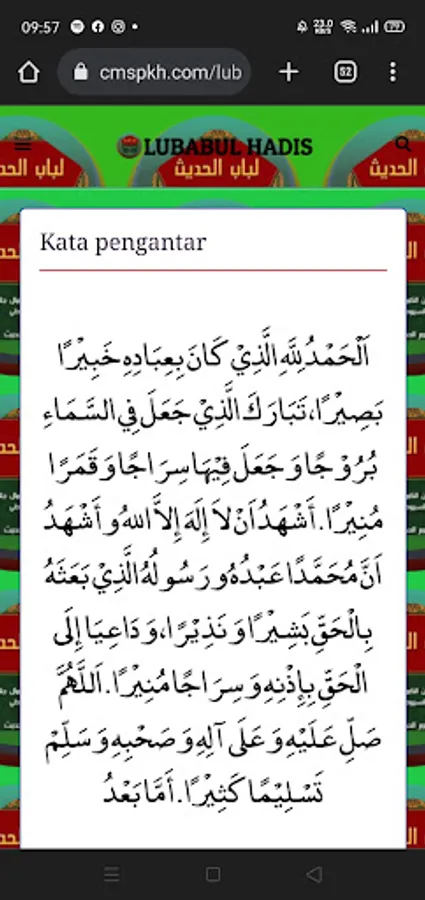 09:57
23.0 KB/S
79
cmspkh.com/lub
52
لباب الحديث
LUBABUL HADIS
لباب الحديث
الحديث
Kata pengantar
اَلْحَمْدُ لِلَّهِ الَّذِيْ كَانَ بِعِبَادِهِ خَبِيْرًا
بَصِيْرًا، تَبَارَكَ الَّذِيْ جَعَلَ فِي السَّمَاءِ
بُرُوْجًا وَجَعَلَ فِيْهَا سِرَاجًا وَقَمَرًا
مُنِيْرًا. أَشْهَدُ اَنْ لاَ إِلَهَ إِلاَّ اللهُ وأَشْهَدُ
اَنَّ مُحَمَّدًا عَبْدُهُ ورَسُولُهُ الَّذِيْ بَعَثَهُ
بِالْحَقِّ بَشِيْرًا وَنَذِيْرًا، وَدَاعِيَا إِلَى
الْحَقِّ بِإِذْنِهِ وَسِرَاجًا مُنِيْرًا. اَللَّهُمَّ
صَلِّ عَلَيْهِ وَعَلَى آلِهِ وَصَحْبِهِ وَسَلِّمْ
تَسْلِيْمًا كَثِيْرًا. أَمَّا بَعْدُ